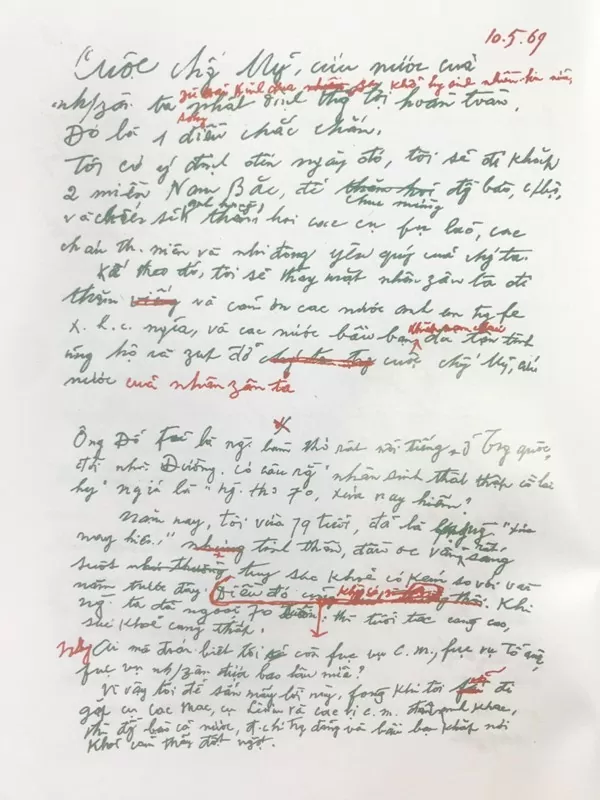 10.5.69
Cuộc chố Mỹ, cứu nước của
zù fải kinh qua khổ, hy sinh nhiều hơn nữa,
nh/zân ta nhất định thg lợi hoàn toàn.
song
Đó là 1 điều chắc chắn.
Tôi có ý định đến ngày đó, tôi sẽ đi khắp
2 miền Nam Bắc, để thăm hỏi đg bào, c/bộ,
chúc mừng
và chiến sĩ anh hùng, thăm hỏi các cụ fụ lão, các
cháu th. niên và nhi đồng yêu quý của chg ta.
Kế theo đó, tôi sẽ thay mặt nhân zân ta đi
thăm viếng và cám ơn các nước anh em trg fe
x. h. c. nghĩa, và các nước bầu bạn khắp năm châu đã tận tình
ủng hộ và zúp đỡ cuộc chố Mỹ, cứu
nước của nhân zân ta
x
Ông Đỗ Fủ là ng làm thơ rất nổi tiếng ở Trg quốc,
đời nhà Đường. Có câu rằg "nhân sinh thất thập cổ lai
hy" nghĩa là "ng thọ 70, xưa nay hiếm."
Năm nay, tôi vừa 79 tuổi, đã là hạng "xưa
nay hiếm", nhưng tinh thần, đầu óc vẫn sáng
suốt tuy sức khoẻ có kém so với vài
năm trước đây. Điều đó cũng không có gì lạ. Khi
ng ta đã ngoài 70 xuân, thì tuổi tác càng cao,
sức khoẻ càng thấp.
Nhưg Ai mà đoán biết tôi sẽ còn fục vụ C.M., fục vụ Tổ quốc,
fục vụ nh/zân được bao lâu nữa?
Vì vậy tôi để sẵn mấy lời này, fòng khi tôi sẽ đi
gặp cụ Các Mác, cụ Lênin và các vị c.m. đàn anh khác,
thì đg bào cả nước, đ.chí trg đảng và bầu bạn khắp nơi
khỏi cảm thấy đột ngột.